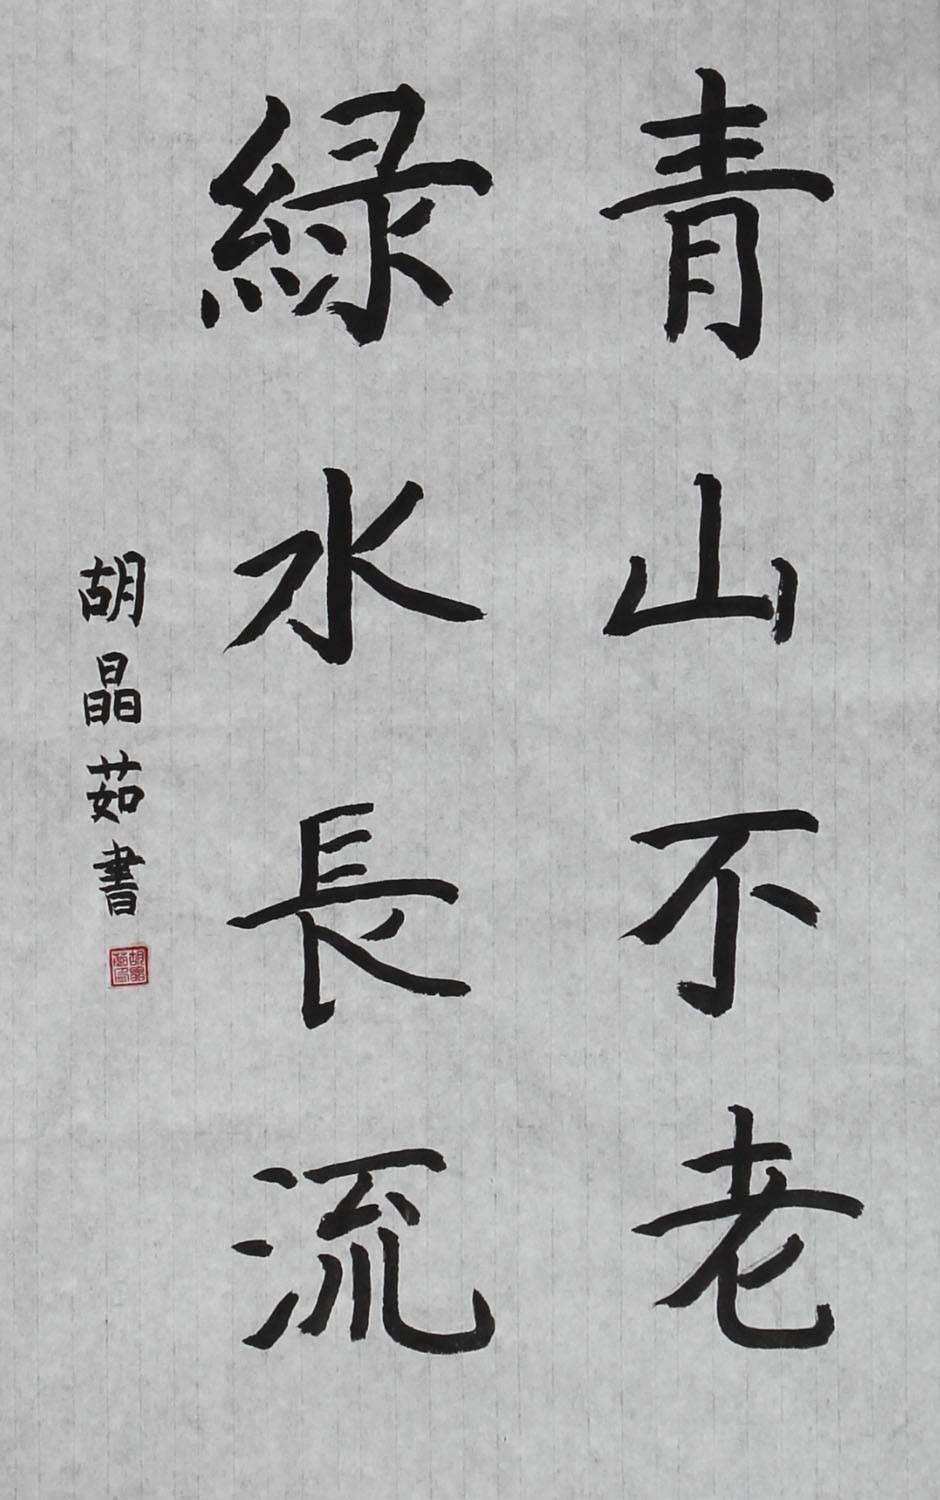 青山不老
緑水長流
胡晶茹書